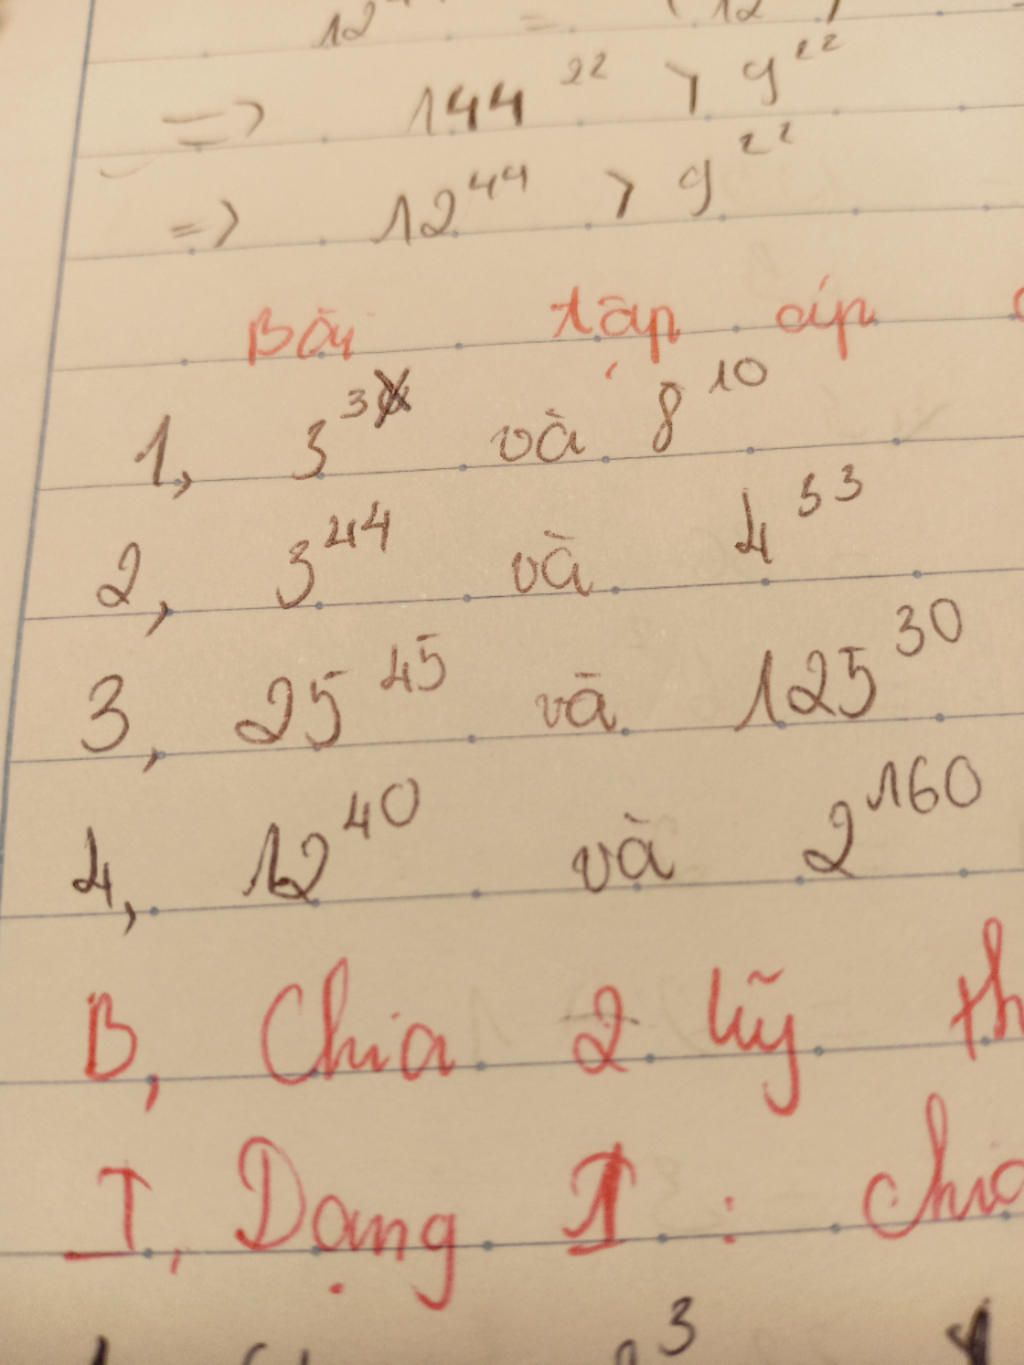 => 144²² > 9²²
=> 12⁴⁴ > 9²²
Bài tập áp
1, 3³ và 8¹⁰
2, 3⁴⁴ và 4³³
3, 25⁴⁵ và 125³⁰
4, 12⁴⁰ và 2¹⁶⁰
B, Chia 2 lũy th
I, Dạng 1 : chia